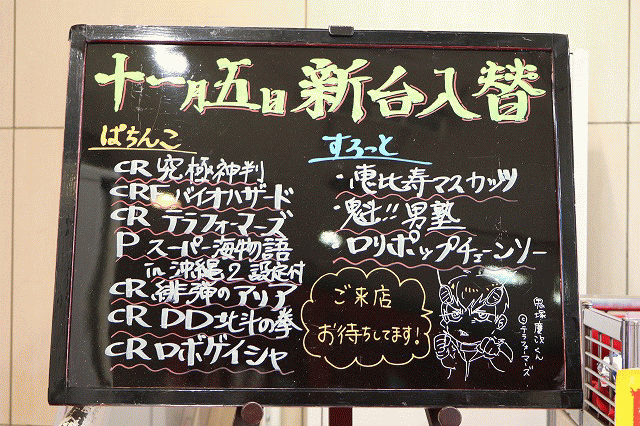 十一月五日 新台入替
ぱちんこ
CR 究極神判
CRF バイオハザード
CR テラフォーマーズ
P スーパー海物語
in 沖縄2 設定付
CR 緋弾のアリア
CR DD北斗の拳
CR ロボゲイシャ
すろっと
・恵比寿マスカッツ
・魁!!男塾
・ロリポップチェーンソー
ご来店
お待ちしてます!
鬼塚慶次くん
©テラフォーマーズ